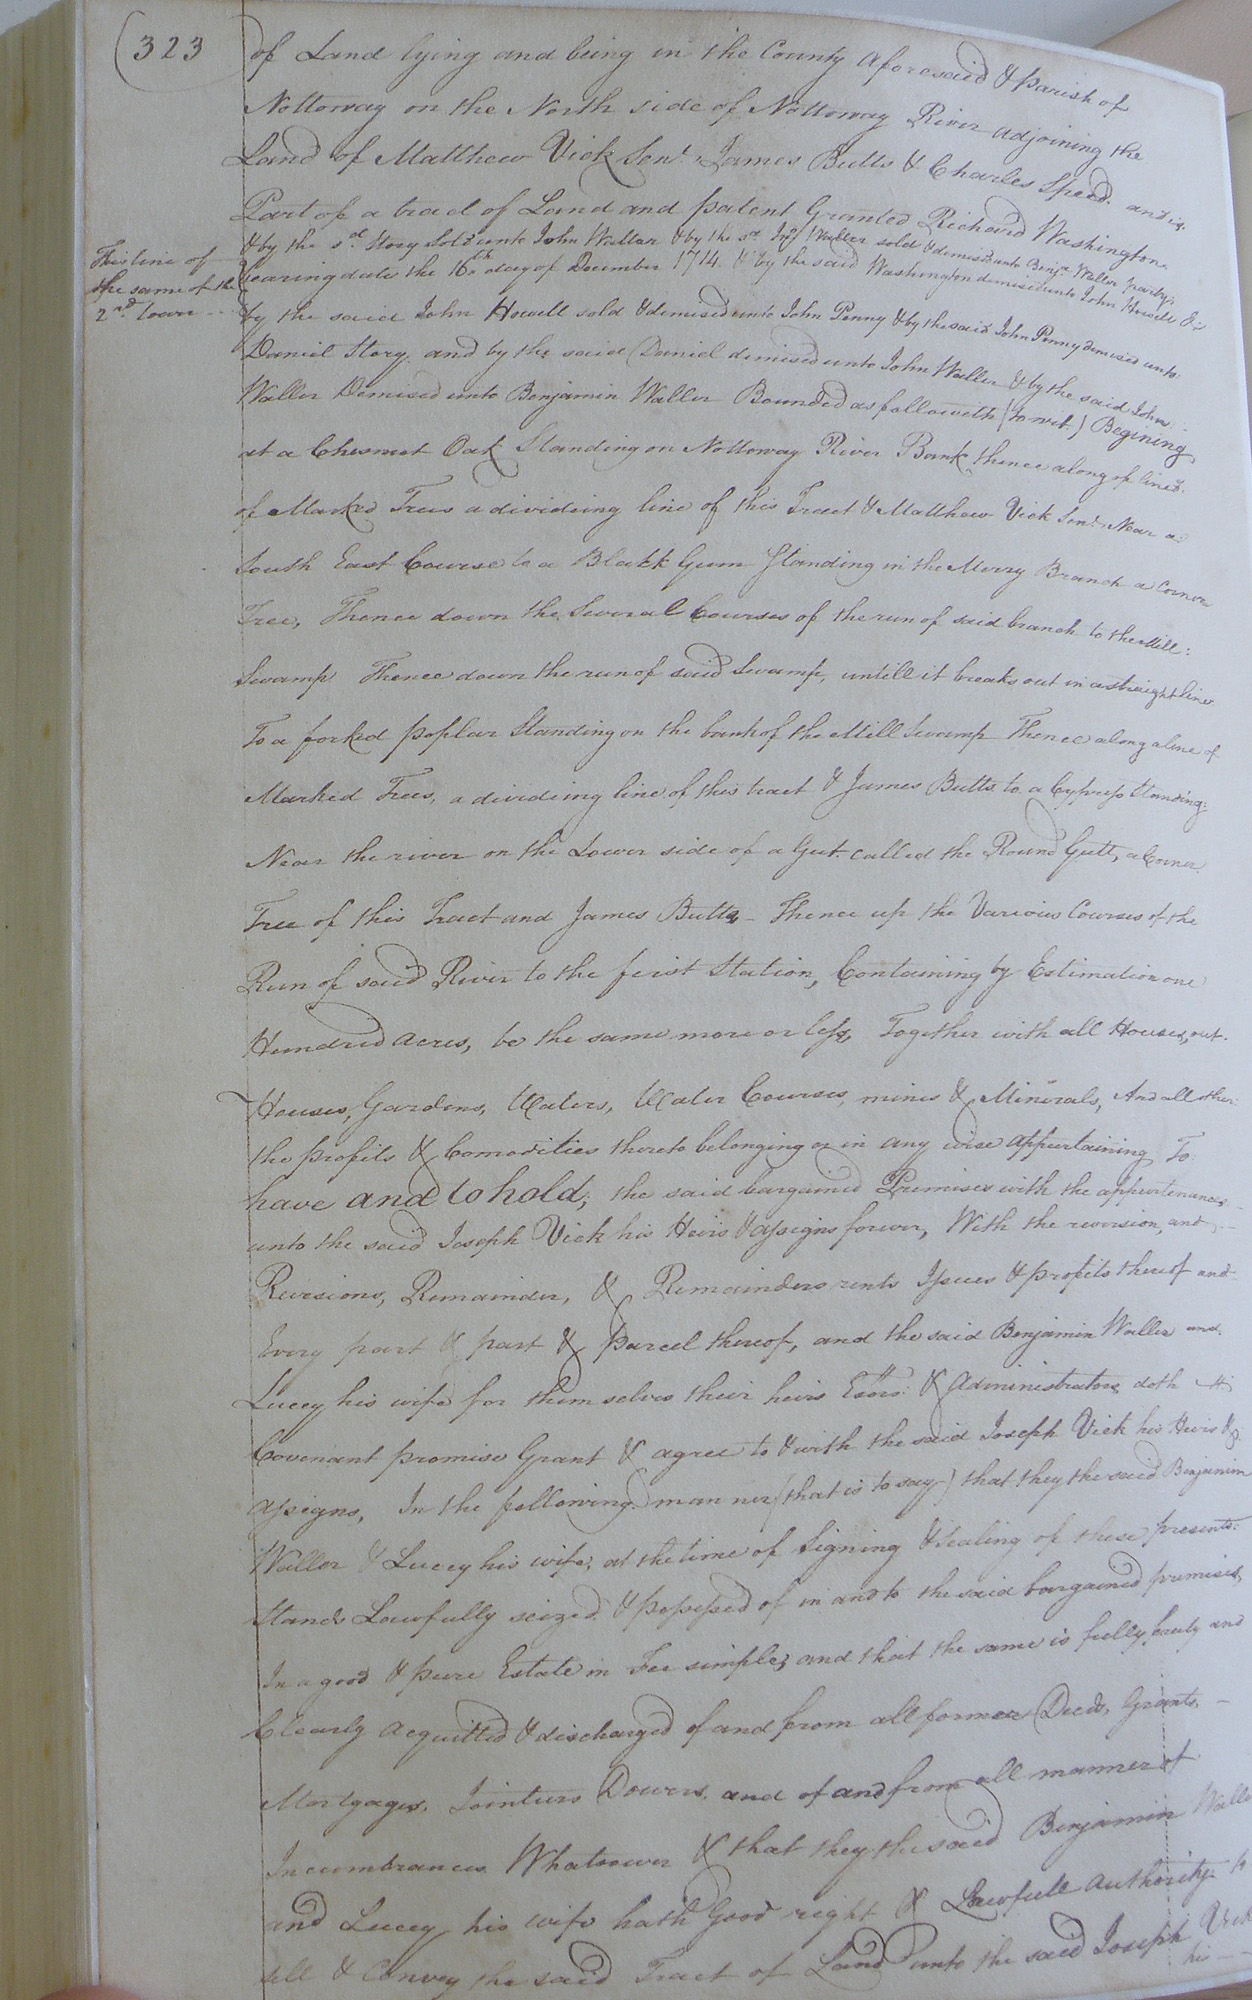 323
of Land lying and being in the County Aforesaid & Parish of
Nottoway on the North side of Nottoway River adjoining the
Land of Matthew Vick Senr. James Butts & Charles Speed. and is
Part of a tract of Land and patent Granted Richard Washington
& by the sd. Story Sold unto John Waller & by the sd. Jno. Waller sold & demised unto Benja. Waller party
This line of
the same of the
2nd. lower
bearing date the 16th. day of December 1714. & by the said Washington demised unto John Howell &
by the said John Howell sold & demised unto John Penny & by the said John Penny demised unto
Daniel Story. and by the said Daniel demised unto John Waller & by the said John
Waller Demised unto Benjamin Waller Bounded as followeth (to wit.) Begining
at a Chesnut Oak Standing on Nottoway River Bank thence along of line
of Marked Trees a divideing line of this Tract & Matthew Vick Senr. Near a
South East Course to a Blakk Gum Standing in the Merry Branch a Corner
Tree, Thence down the Several Courses of the run of said branch to the Mill
Swamp Thence down the run of said Swamp, untill it breaks out in a straight line
To a forked poplar Standing on the bank of the Mill Swamp Thence along a line of
Marked Trees, a divideing line of this tract & James Butts to a Cypress Standing
Near the river on the Lower side of a Gut. called the Round Gutt, a Corner
Tree of this Tract and James Butts - Thence up the Various Courses of the
Run of said River to the feist Station, Containing by Estimation one
Hundred acres, be the same more or less, Together with all Houses, out.
Houses, Gardens, Waters, Water Courses, mines & Minerals, And all other
the profits & Comodities thereto belonging or in any wise appertaining To
have and to hold, the said bargained Premises with the appertenances
unto the said Joseph Vick his Heirs & assigns forever, With the reversion, and
Reversions, Remainder, & Remainders rents Issues & profits thereof and
Every part & part & parcel thereof, and the said Benjamin Waller and
Lucey his wife for them selves their heirs Exors. & Administrators doth
Covenant promise Grant & agree to & with the said Joseph Vick his Heirs &
assigns, In the following man ner (that is to say) that they the said Benjamin
Waller & Lucey his wife, at the time of Signing & Sealing of these presents
Stands Lawfully seized & possessed of in and to the said bargained premises,
In a good & pure Estate in Fee simple, and that the same is fully, and
Clearly Acquitted & discharged of and from all former Deeds, Grants,
Mortgages, Jointurs Dowers, and of and from all manner of
Incumbrances Whatsoever & that they the said Benjamin Waller
and Lucey his wife hath Good right & Lawfull Authority to
sell & Convey the said Tract of Land unto the said Joseph Vick
his